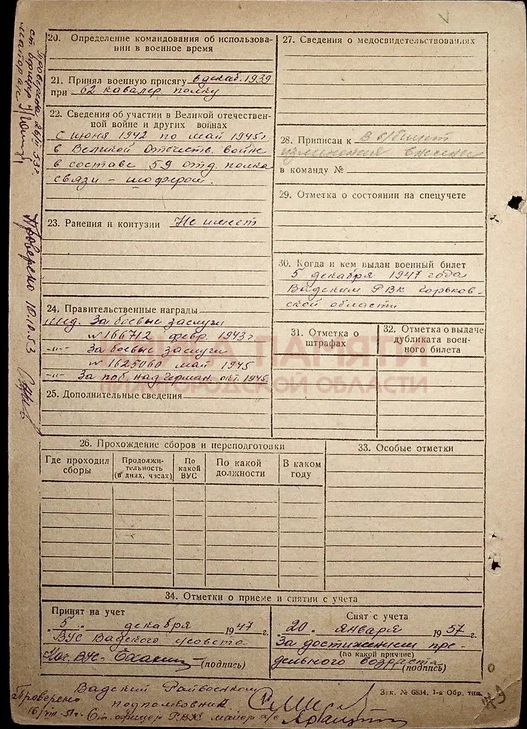 20. Определение командования об использова-
нии в военное время
21. Принял военную присягу в декаб. 1939
при 62 кавалер полку
22. Сведения об участии в Великой отечествен-
ной войне и других войнах
С июня 1942 по май 1945 г
в Великой Отечеств. войне
в составе 59 отд. полка
связи – шофером.
23. Ранения и контузии Не имеет
24. Правительственные награды
Мед. За боевые заслуги
№ 166712 февр 1943 г
—"— За боевые заслуги
№ 1625060 май 1945
—"— За поб. над Герман. окт. 1945
25. Дополнительные сведения
27. Сведения о медосвидетельствованиях
28. Приписан к
в команду №
29. Отметка о состоянии на спецучете
30. Когда и кем выдан военный билет
5 декабря 1947 года
Вадским РВК горьков-
ской области
31. Отметка о
штрафах
32. Отметка о выдаче
дубликата воен-
ного билета
ПАМЯТИ
ОБЛАСТИ
26. Прохождение сборов и переподготовки
Где проходил
сборы
Продолжи-
тельность
(в днах, часах)
По
какой
ВУС
По какой
должности
В каком
году
33. Особые отметки
34. Отметки о приеме и снятии с учета
Принят на учет
5. декабря 1947 г.
ВУС Вадского с/совета
Нач. ВУС
(подпись)
Снят с учета
20. января 1957 г.
За достижением пре-
(по какой причине)
дельного возраста
(подпись)
Вадский Райвоенком
подполковник
Ст. офицер РВК майор
Зак. № 6834. 1-я Обр. тип.
Проверено
Проверено 10.10.53